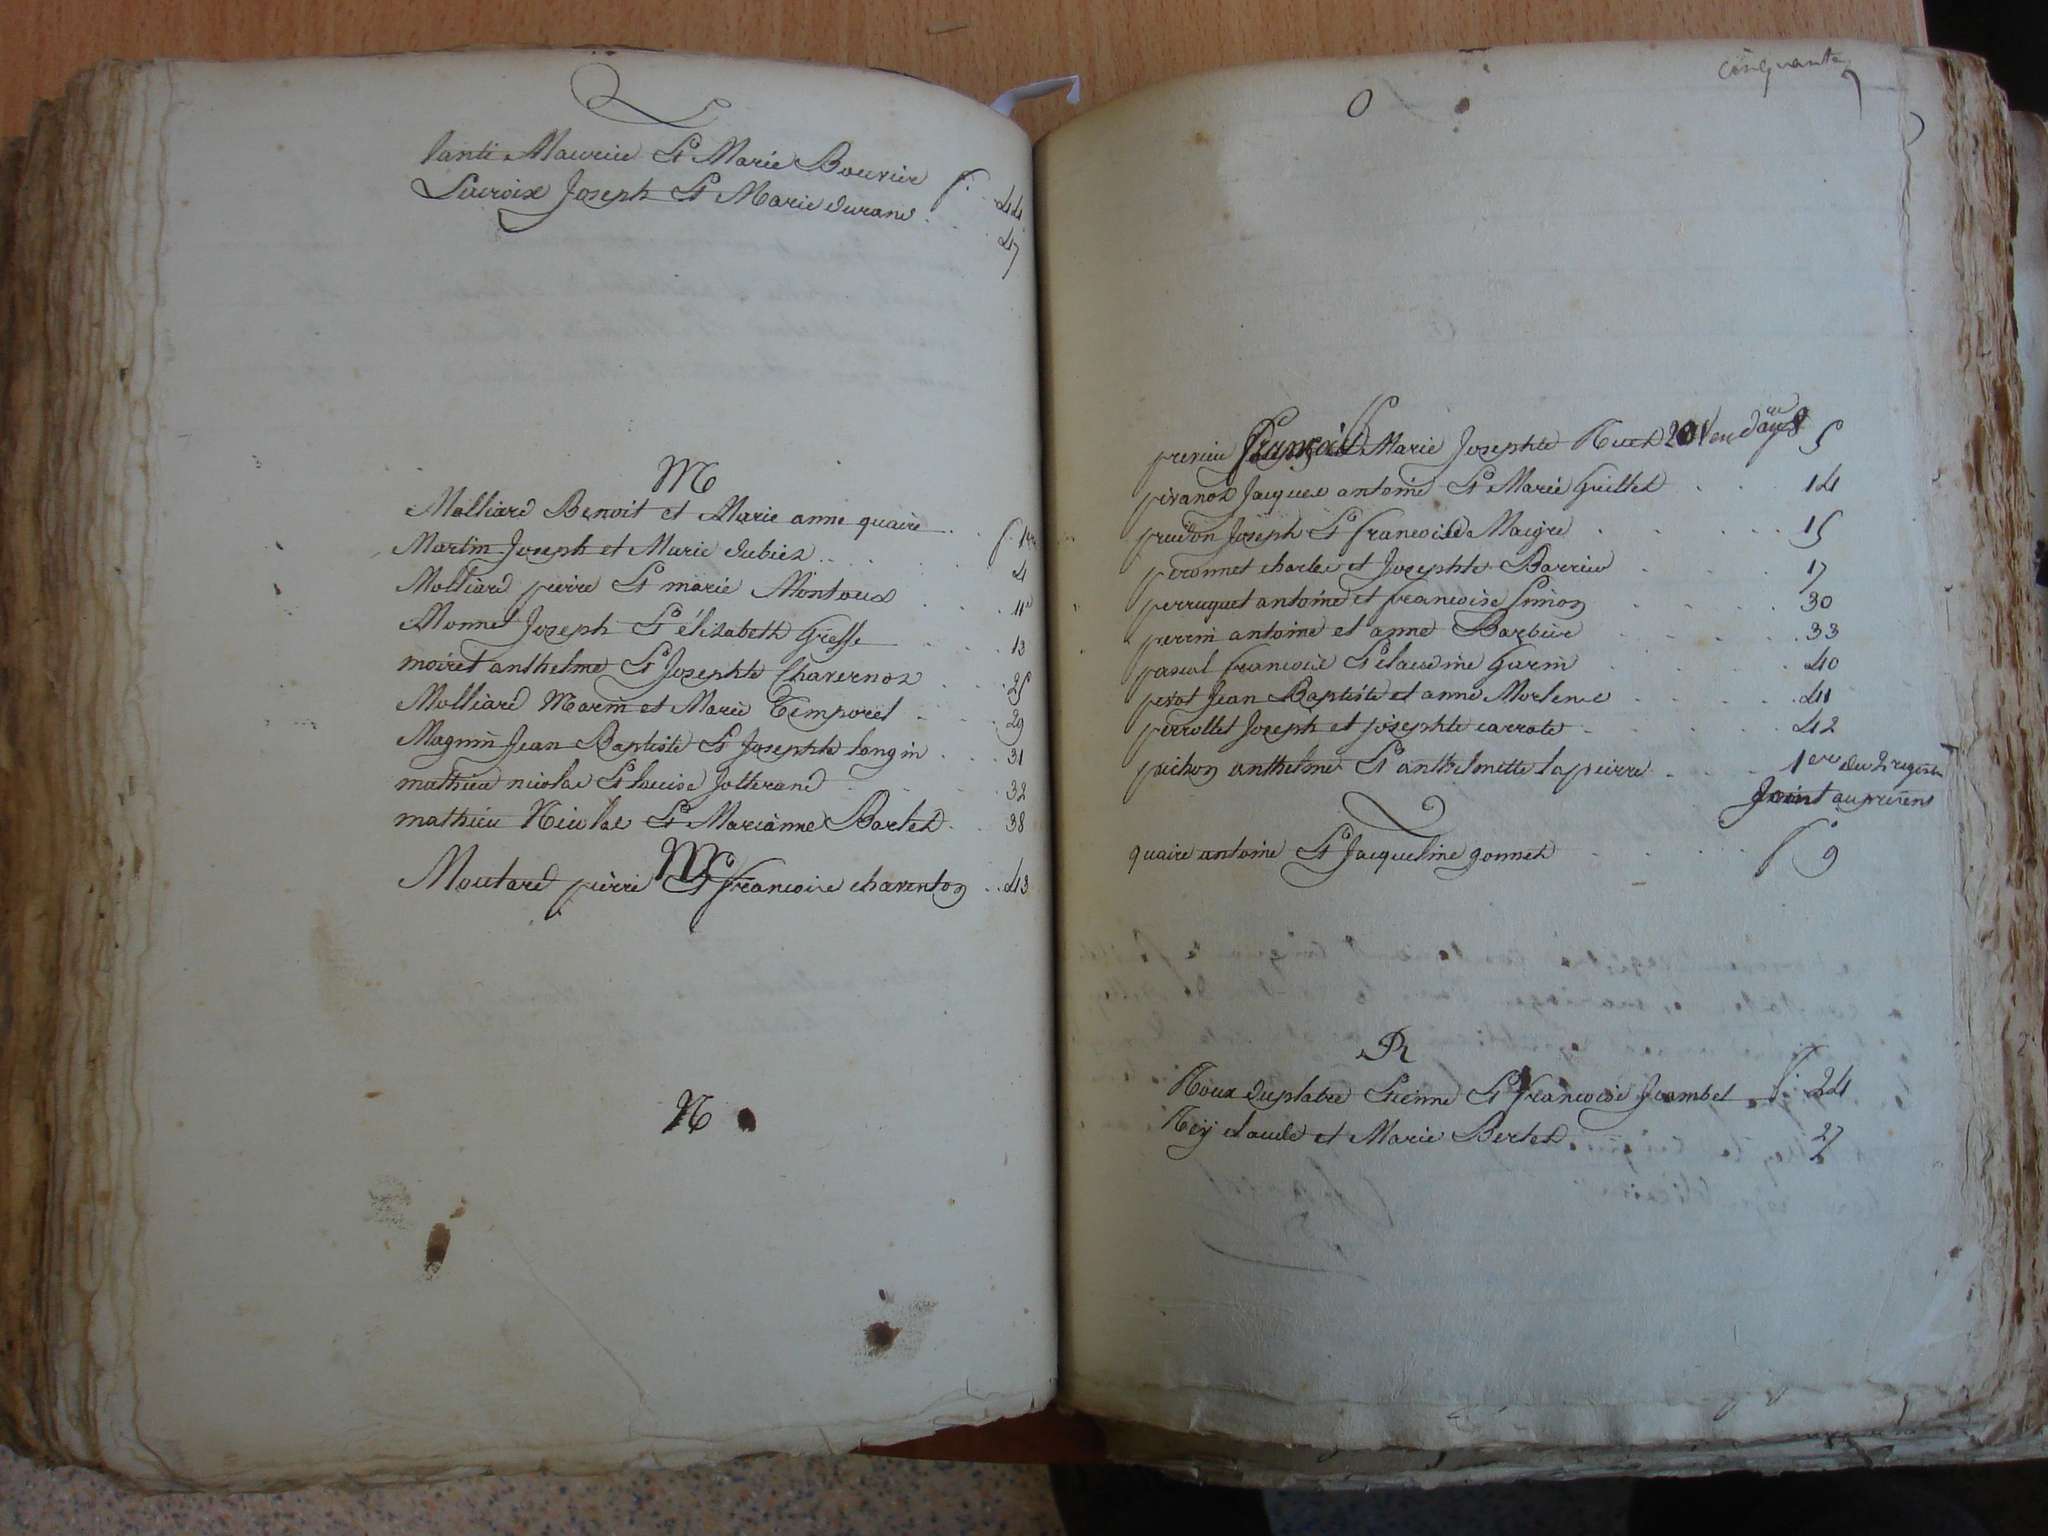 L
Lanti Maurice Et Marie Bouvier f. 44
Lacroix Joseph Et Marie durand 47
M
Molliard Benoit et Marie anne quaire f. 1er
Martin Joseph et Marie dubiez 4
Molliard pierre Et marie Montoux 11
Monnet Joseph Et élizabeth Gresse 13
moiret anthelme Et Josephte Chavernoz 25
Molliard Marin et Marie Temporel 29
Magnin Jean Baptiste Et Josephte longin 31
mathieu nicolas Et louise Jolterand 32
mathieu Nicolas Et Marianne Bartet 38
M
Moutard pierre Et francoise charenton 43
N
cinquante
O
P
previeu françois Et Marie Josephte Ruet 20 Ven. an 8 5
pivanoz Jacques antoine Et Marie Guillet 14
prudon Joseph Et francoise Maigre 15
peronnet charles et Josephte Barrieu 17
perruquet antoine et francoise Simon 30
perrin antoine et anne Barbier 33
pascal francois Et claudine Garin 40
pivot Jean Baptiste et anne Morlene 41
perrollet Joseph et josephte carrote 42
pichon anthelme Et anthelmette lapierre 1er du 2 registre
Joint au présent
Q
quaire antoine Et Jacqueline gonnet f. 9
R
Roux duplatre Etienne Et francoise Jeambel f. 24
Rey claude et Marie Bertet 27